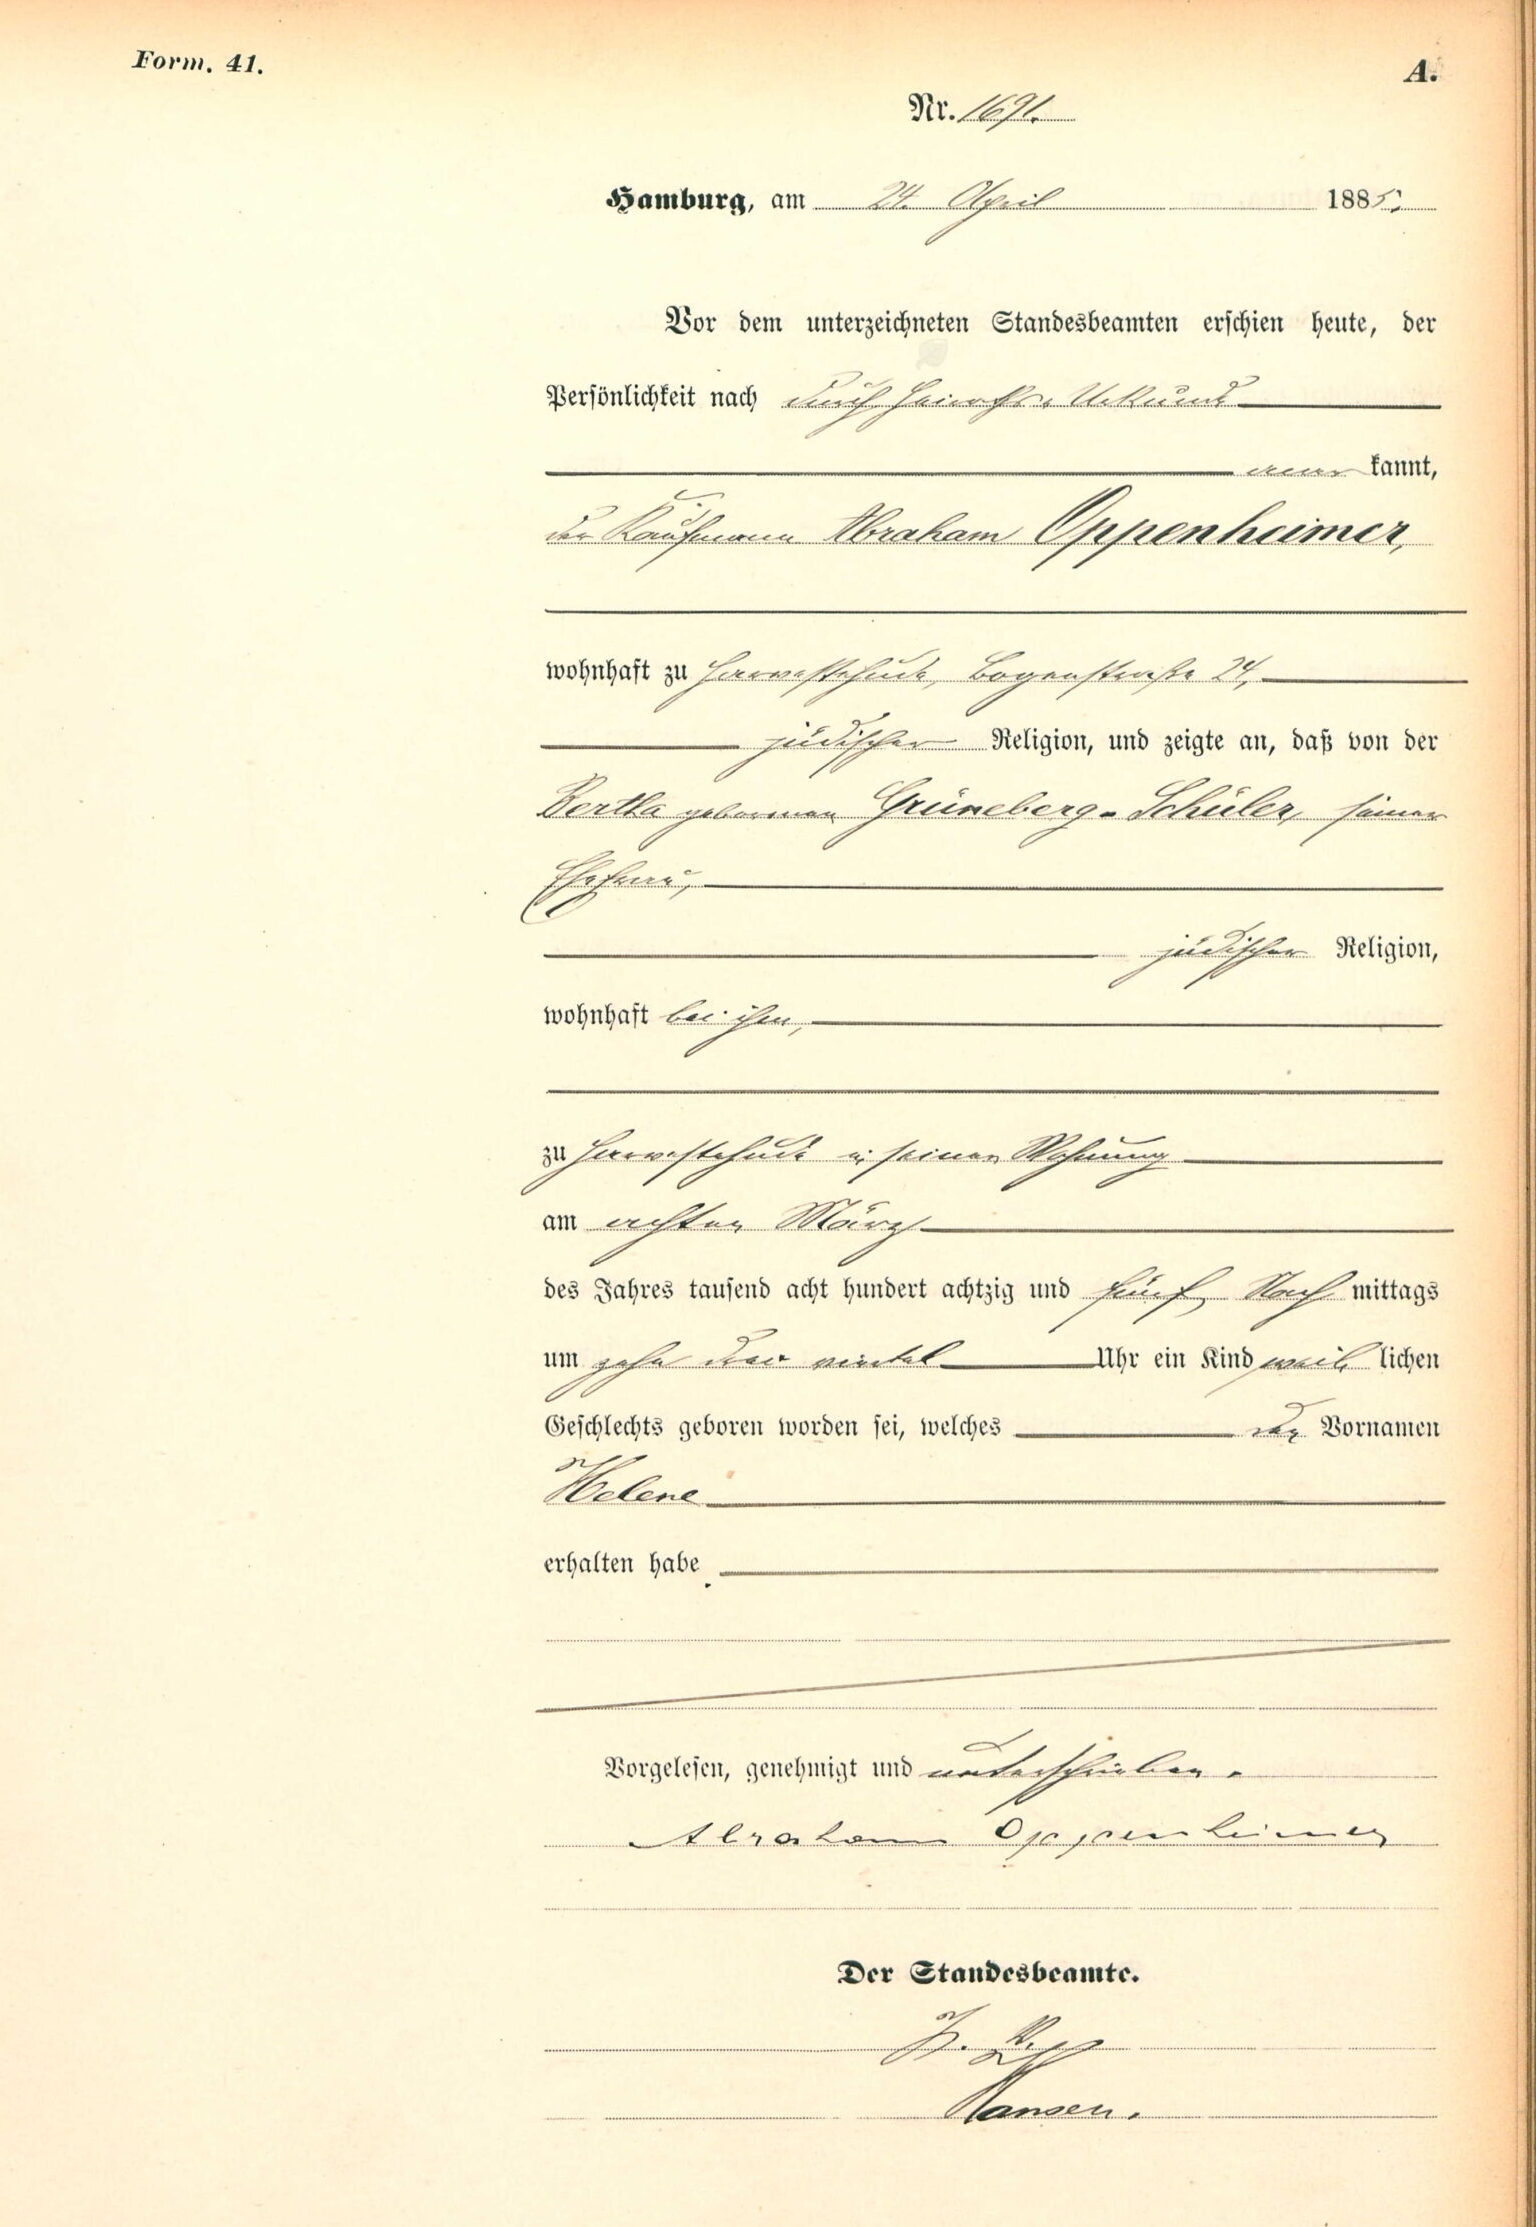 Form. 41.
A.
Nr. 1691.
Hamburg, am 24. April 1885.
Vor dem unterzeichneten Standesbeamten erschien heute, der
Persönlichkeit nach durch Heiraths-Urkunde
aner kannt,
der Kaufmann Abraham Oppenheimer,
wohnhaft zu Harvestehude, Bogenstraße 24,
jüdischer Religion, und zeigte an, daß von der
Bertha geborenen Grüneberg-Schüler, seiner
Ehefrau,
jüdischer Religion,
wohnhaft bei ihm,
zu Harvestehude in seiner Wohnung
am achten März
des Jahres tausend acht hundert achtzig und fünf Nach mittags
um zehn drei viertel Uhr ein Kind weib lichen
Geschlechts geboren worden sei, welches den Vornamen
Helene
erhalten habe.
Vorgelesen, genehmigt und unterschrieben.
Abraham Oppenheimer
Der Standesbeamte.
Hansen.